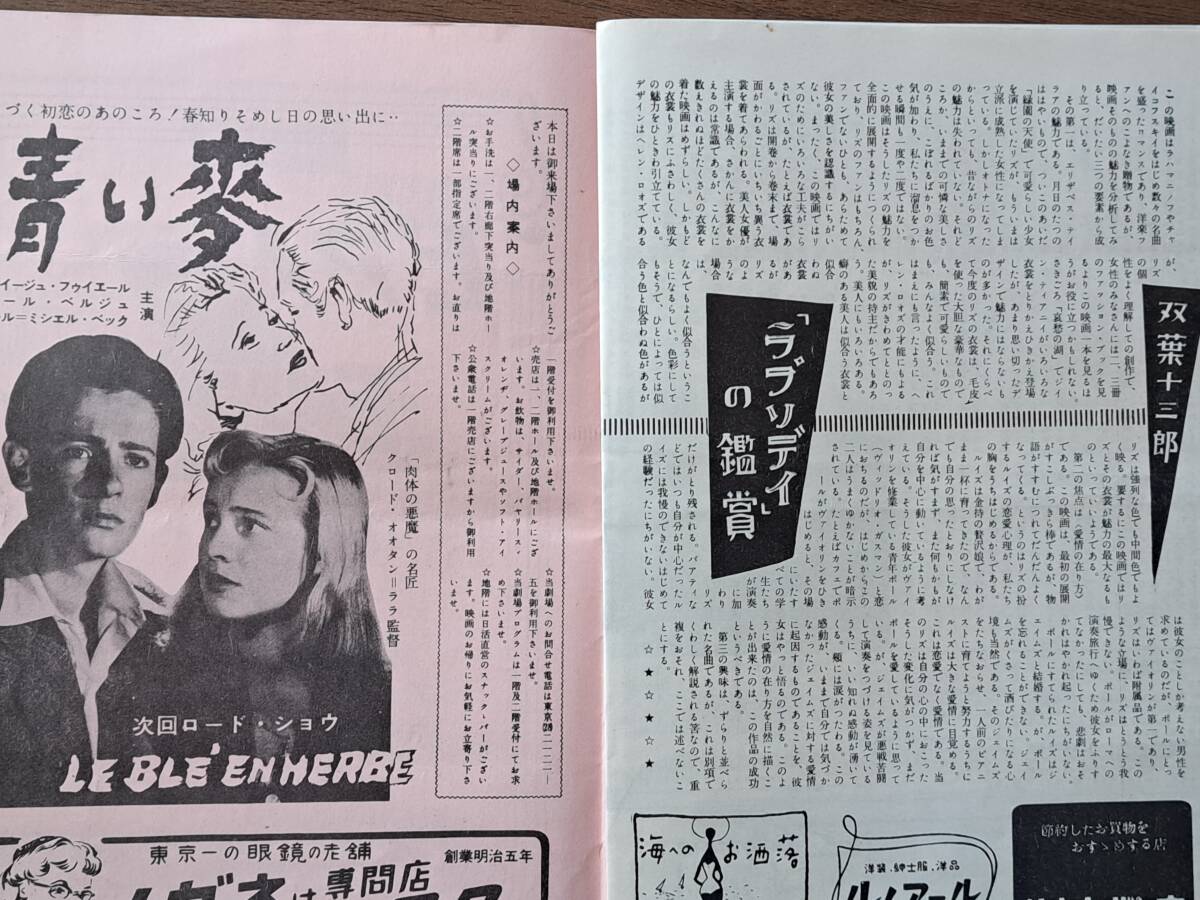 づく初恋のあのころ!春知りそめし日の思い出に‥
青い麥
イージュ・フゥイエール
ール・ベルジュ
ル=ミシエル・ベック
主演
「肉体の悪魔」の名匠
クロード・オオタン=ララ監督
次回ロード・ショウ
LE BLÉ EN HERBE
東京一の眼鏡の老舗
創業明治五年
メガネは専門店
本日は御来場下さいましてありがとうご
ざいます。
◇場内案内◇
☆お手洗は一、二階右廊下突当り及び地階ホー
ル突当りにございます。
☆二階席は一部指定席でございます。お直りは
一階受付を御利用下さいませ。
☆売店は一、二階ホール及び地階ホールにござ
います。お飲物は、サイダー、バヤリース、
オレンヂ、グレープジュースやソフト・アイ
スクリームがございます。
☆公衆電話は一階売店にございますから御利用
下さいませ。
☆当劇場へのお問合せ電話は東京
五を御利用下さいませ。
☆当劇場プログラムは一階及二階受付にてお求
め下さいませ。
☆地階には日活直営のスナック・バーがござい
ます。映画のお帰りにお気軽にお立寄り下さ
いませ。
双葉十三郎
「ラプソディ」
の鑑賞
この映画はラハマニノフやチャ
イコフスキイをはじめ数々の名曲
を盛ったロマンスであり、洋楽フ
ァンへのこよなき贈物であるが、
映画そのものの魅力を分析してみ
ると、だいたい三つの要素から成
り立っている。
その第一は、エリザベス・テイ
ラアの魅力である。月日のたつの
ははやいもので、ついこのあいだ
「緑園の天使」で可愛らしい少女
を演じていたリズが、もういまは
立派に成熟した女性になってしま
っている。しかしオトナになった
からといっても、昔ながらのリズ
の魅力は失われていない。それど
ころか、いままでの可憐な美しさ
のうえに、こぼれるばかりのお色
気が加わり、私たちに溜息をつか
せる瞬間も一度や二度ではない。
この映画はそうしたリズの魅力を
全面的に展開するようにつくられ
ており、リズのファンはもちろん、
ファンでないひとも、あらためて
彼女の美しさを認識するにちがい
ない。まったく、この映画ではリ
ズのためにいろいろな工夫がこら
されているが、たとえば衣裳であ
る。リズは開巻から巻末まで、場
面がかわるごとにいちいち異う衣
裳を着てあらわれる。美人女優が
主演する場合、さかんに衣裳をか
えるのは常識であるが、こんなに
数えきれぬほどたくさんの衣裳を
着た映画はめずらしい。しかもど
の衣裳もリズにふさわしく、彼女
の魅力をひときわ引立てている。
デザインはヘレン・ロオズである
が、
リズ
の個
性をよく理解しての創作で、
女性のみなさんには、二、三冊
のファッション・ブックを見
るよりこの映画一本を見るほ
うがお役に立つかもしれない。
さきごろ「哀愁の湖」でジイ
ン・ティアニイがいろいろな
衣裳をとりかえひきかえ登場
したが、あまり思い切ったデ
ザインで魅力にはならないも
のが多かった。それにくらべ
て今度のリズの衣裳は、毛皮
を使った大胆な豪華なもので
も、簡素で可愛らしいもので
も、みんなよく似合う。これ
はまえにも言ったように、ヘ
レン・ロオズの才能にもよる
が、リズがきわめてととのっ
た美貌の持主だからでもあろ
う。美人にもいろいろあって、
癖のある美人は似合う衣裳と
似合
わぬ
衣裳
があ
るが
リズ
のよ
うな
場合
なんでもよく似合うというこ
とになるらしい。色彩にして
もそうで、ひとによっては似
合う色と似合わぬ色があるが
リズは強烈な色でも中間色でもよ
く映る。要するにこの映画ではリ
ズとその衣裳が魅力の最大なるも
のとなっていよう。
第二の焦点は〈愛情の在り方〉
である。この映画は、最初の展開
がすこしぶっきら棒であるが、物
語がすすむにつれてだんだんよく
なってくる。というのはリズの扮
するルイズの恋愛心理が、私たち
の胸をうちはじめるからである。
ルイズは金持の贅沢娘で、わが
まま一杯に育ってきたので、なん
でも自分の思いどおりにしなけ
れば気がすまず、また何もかもが
自分を中心に動いているように考
えている。そうした彼女がヴァイ
オリンを修業している青年ポール
(ヴィットリオ・ガスマン)と恋
におちるのだが、はじめからこの
二人はうまくゆかないことが暗示
されている。たとえばカフェでポ
ールがヴァイオリンをひき
はじめると、その場
にいたす
べての学
生たち
が演奏
に加
わり
リズ
だけがとり残される。パアティな
どではいつも自分が中心だったル
イズには我慢のできないはじめて
の経験だったにちがいない。彼女
は彼女のことしか考えない男性を
求めているのだが、ポールにとっ
てはヴァイオリンが第一であり、
リズはいわば附属品である。この
ような立場に、リズはとうとう我
慢できない。ポールがローマへの
演奏旅行へゆくため彼女をふりす
てなかったにしても、悲劇はおそ
かれはやかれ起ったにちがいない。
ポールにすてられたルイズはジ
ェイムズと結婚する。が、ポール
を忘れることができない。ジェイ
ムズがくさって酒びたりになる心
境も当然である。そのジェイムズ
をたちなおらせ、一人前のピアニ
ストに育てようと努力するうちに
ルイズは大きな愛情に目覚める。
これは恋愛でなく愛情である。当
のリズは自分の心の中におこった
そうした変化に気がつかず、まだ
ポールを愛しているように思って
いる。が、ジェイムズが悪戦苦闘
して演奏をつづける姿を見ている
うちに、いい知れぬ感動が湧いて
くる。頬には涙がつたわる。この
感動が、いままで自分では気づか
なかったジェイムズに対する愛情
に起因するものであることを、彼
女はやっと悟るのである。このよ
うに愛情の在り方を自然に描くこ
とが出来たのは、この作品の成功
というべきである。
第三の興味は、ずらりと並べら
れた名曲であるが、これは別項で
くわしく解説される筈なので、重
複をおそれ、ここでは述べないこ
とにする。
☆ ★ ☆ ★ ☆ ☆
海へのお洒落
洋装、紳士服、洋品
ルノアール
節約したお買物を
おすゝめする店